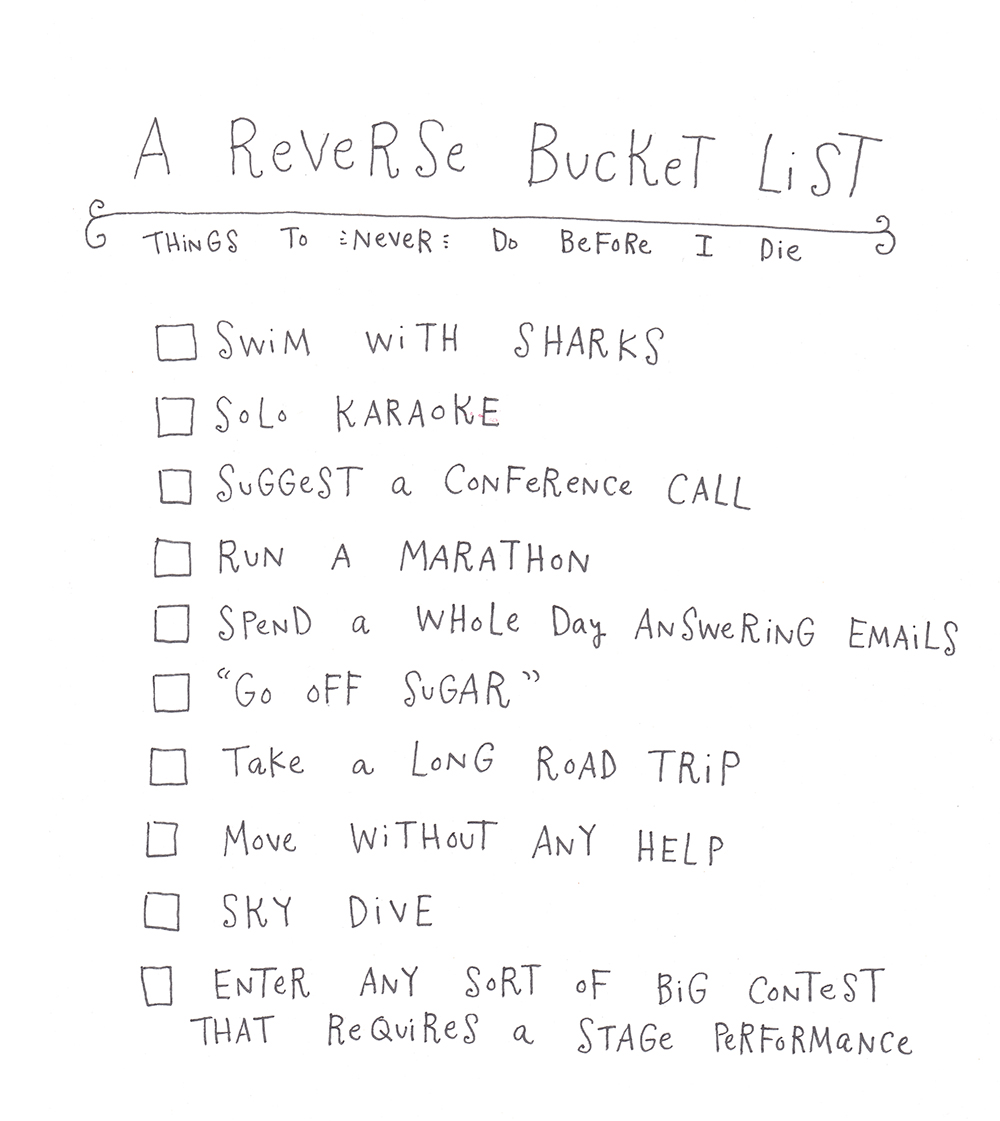 A ReVeRSe BucKeT LiST
THiNGS To NeVeR Do BeFoRe I Die
SWiM WiTH SHARKS
SoLo KARAoKE
SuGGeST a CoNFeReNce CALL
RuN A MARATHoN
SPeND a WHoLe Day ANSWeRiNG EMAiLS
“Go oFF SuGAR”
Take a LoNG RoAD TRiP
Move WiTHouT ANY HELP
SKY DiVE
ENTeR ANY SoRT oF BiG CoNTeST
THAT ReQuiReS a STAGe PeRFoRMaNCe